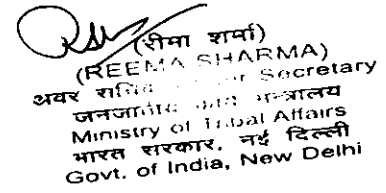 (रीमा शर्मा)
(REEMA SHARMA)
अवर Secretary
मन्त्रालय
Ministry of Tribal Affairs
भारत सरकार, नई दिल्ली
Govt. of India, New Delhi